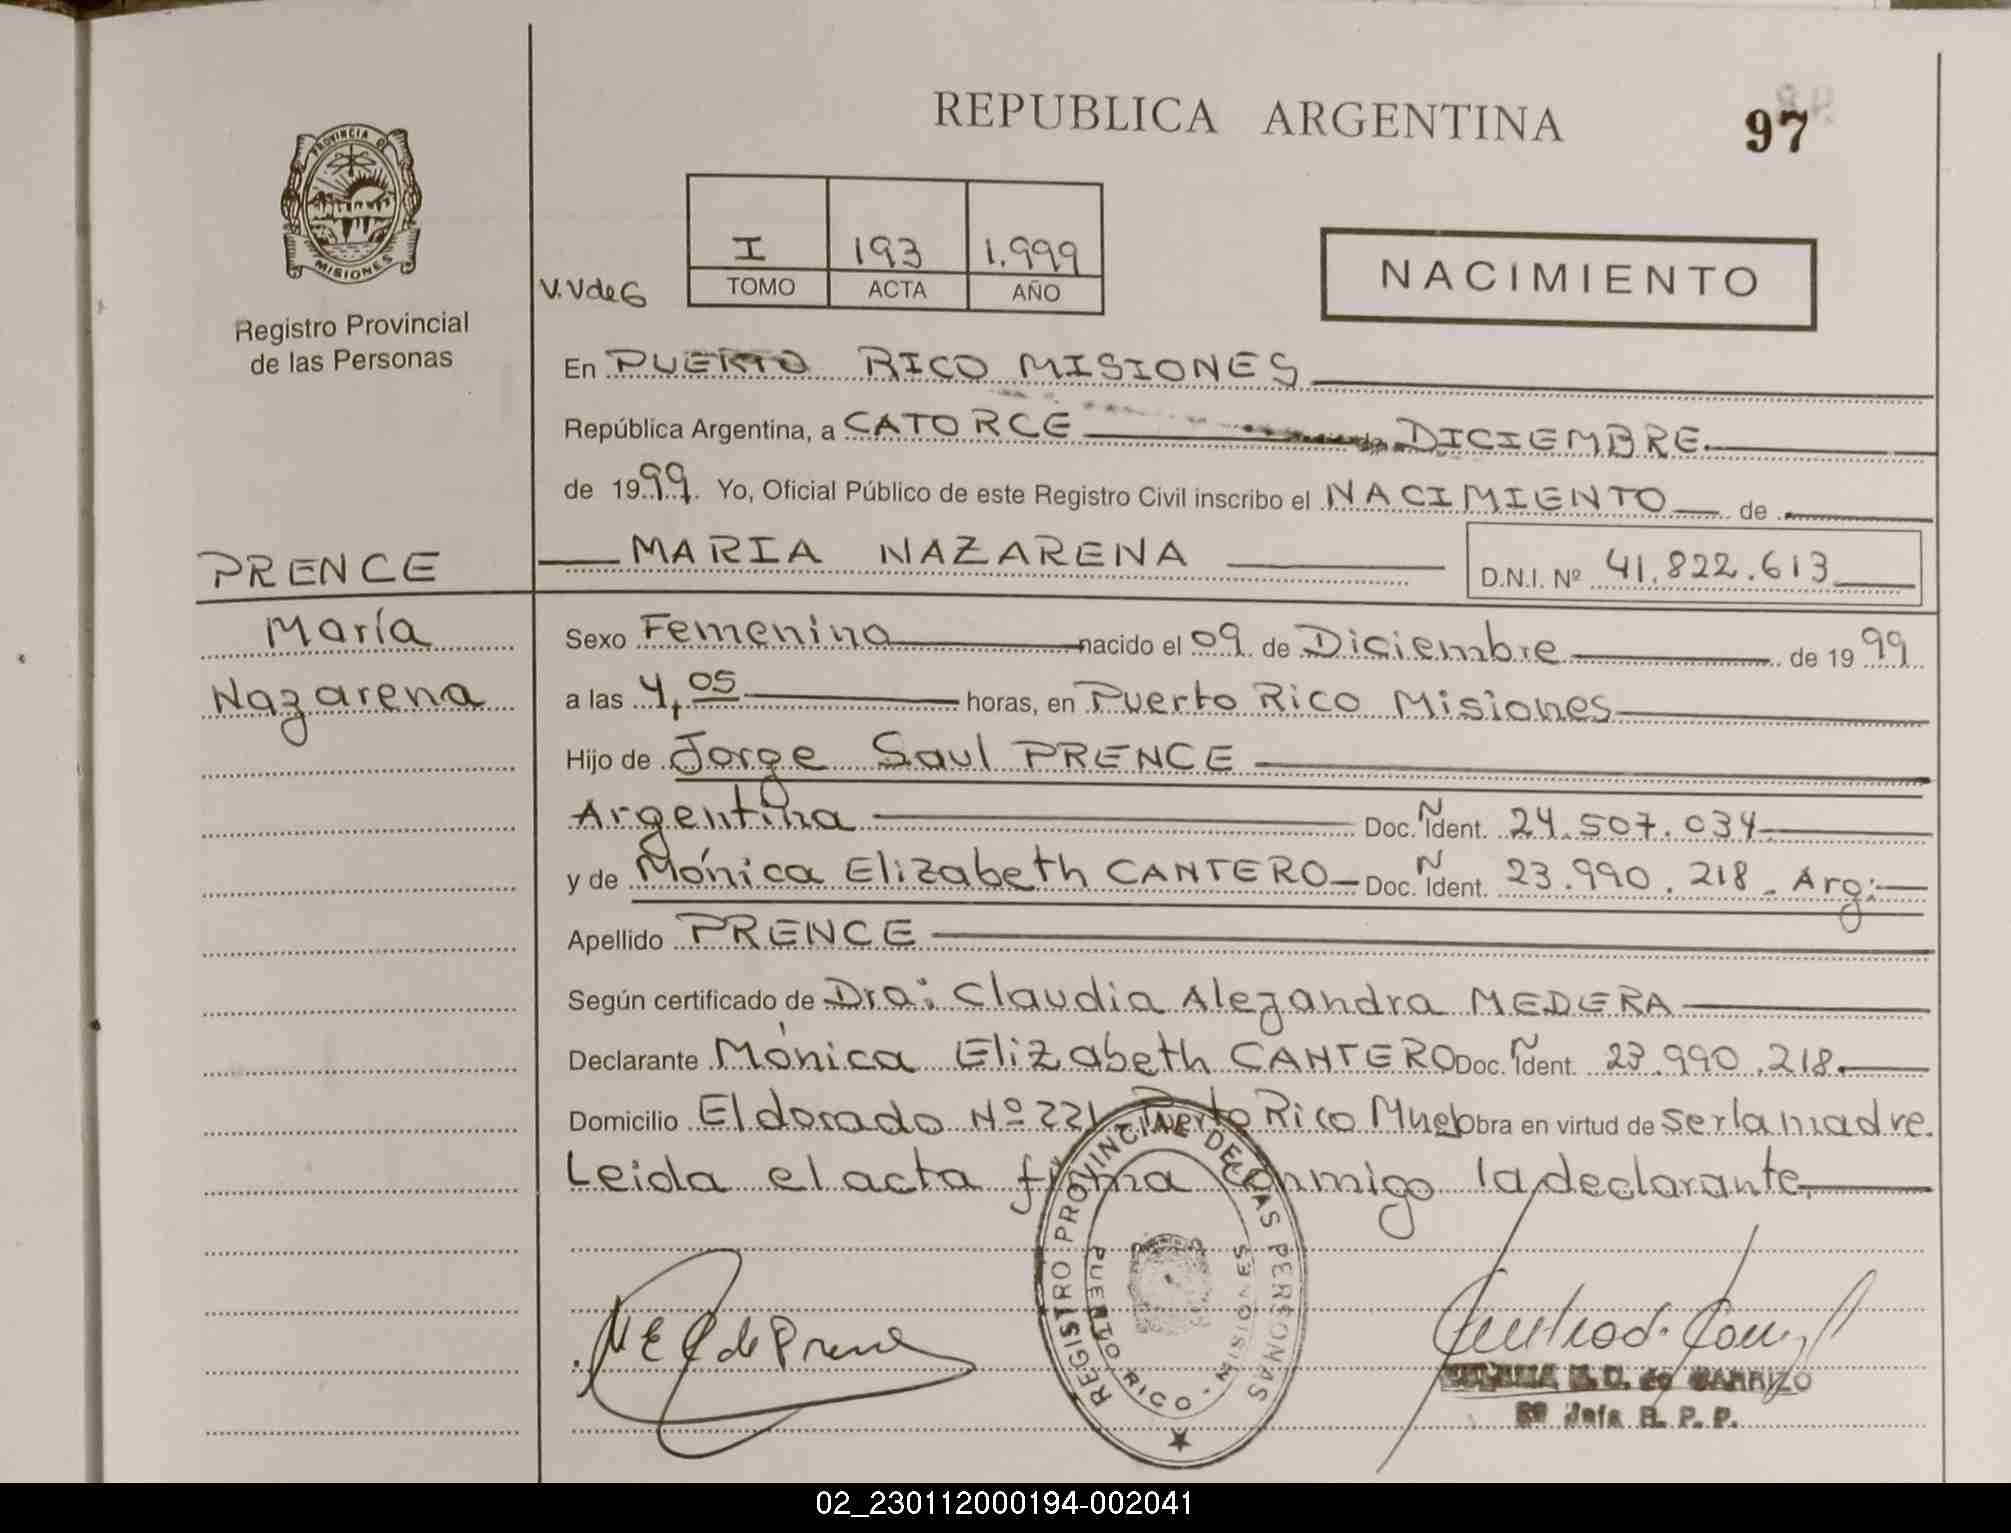 REPUBLICA ARGENTINA
97
PROVINCIA DE
MISIONES
Registro Provincial
de las Personas
V.VdeG
I 193 1.999
TOMO ACTA AÑO
NACIMIENTO
En PUERTO RICO MISIONES
República Argentina, a CATORCE DICIEMBRE
de 1999. Yo, Oficial Público de este Registro Civil inscribo el NACIMIENTO de
PRENCE
MARIA NAZARENA
D.N.I. Nº 41.822.613
María
Nazarena
Sexo Femenino nacido el 09 de Diciembre de 1999
a las 4,05 horas, en Puerto Rico Misiones
Hijo de Jorge Saul PRENCE
Argentina Doc. Ident. 24.507.034
y de Mónica Elizabeth CANTERO Doc. Ident. 23.990.218. Arg:
Apellido PRENCE
Según certificado de Dra: Claudia Alejandra MEDERA
Declarante Mónica Elizabeth CANTERO Doc. Ident. 23.990.218.
Domicilio Eldorado Nº 221 Puerto Rico Mnes obra en virtud de ser la madre.
Leida el acta firma conmigo la declarante.
REGISTRO PROVINCIAL DE LAS PERSONAS
PUERTO RICO - MISIONES
de Prence
de CARRIZO
Jefa R. P. P.
02_230112000194-002041